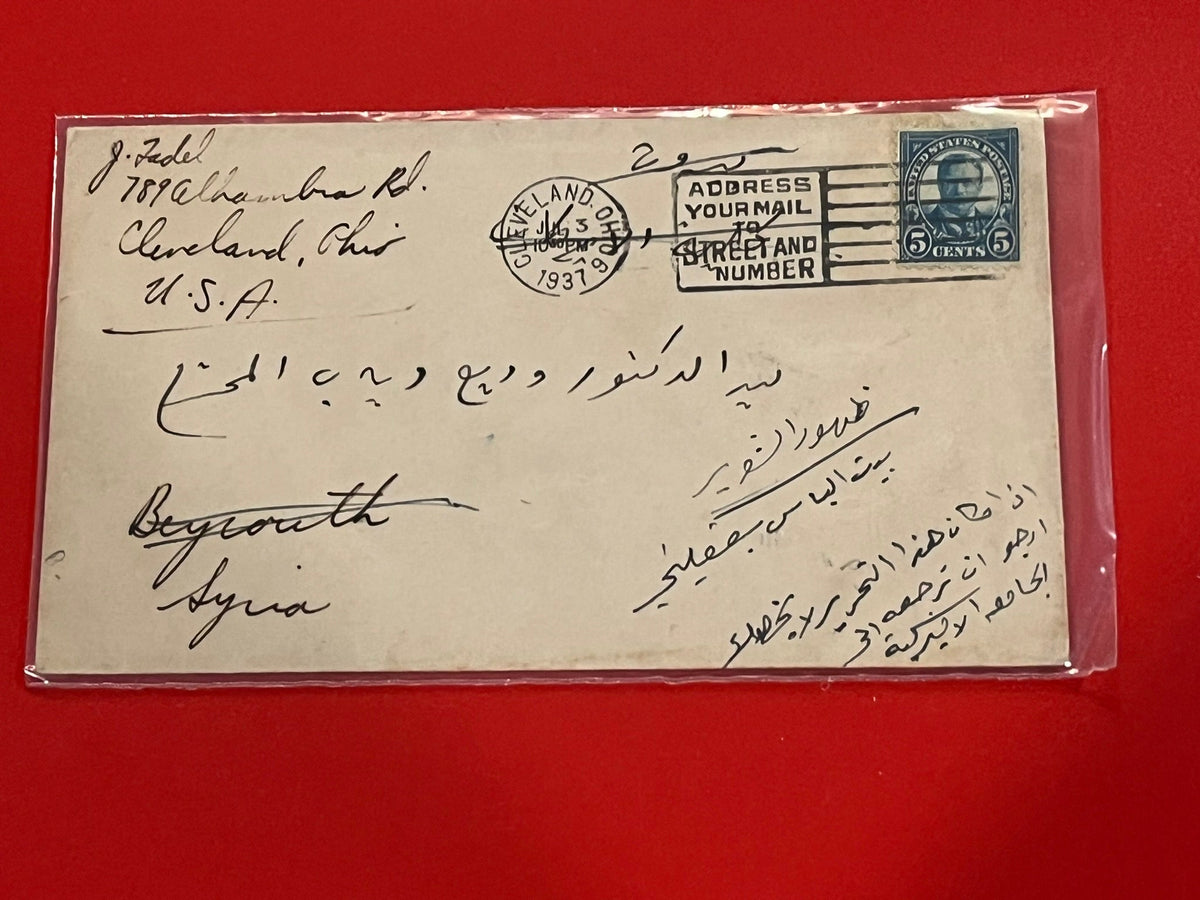 J. Fadel
789 Alhambra Rd.
Cleveland, Ohio
U.S.A.
CLEVELAND, OHIO
JUL 3
1937
ADDRESS
YOUR MAIL
TO
STREET AND
NUMBER
UNITED STATES POSTAGE
5 CENTS 5
بيروت
سيد الدكتور وديع ديب المحترم
ظهور الشوير
بيت الياس
Beyrouth
Syria
اذا كان هذا التحرير لا يخصك
ارجو ان ترجعه الى
الجامعه الاميركية